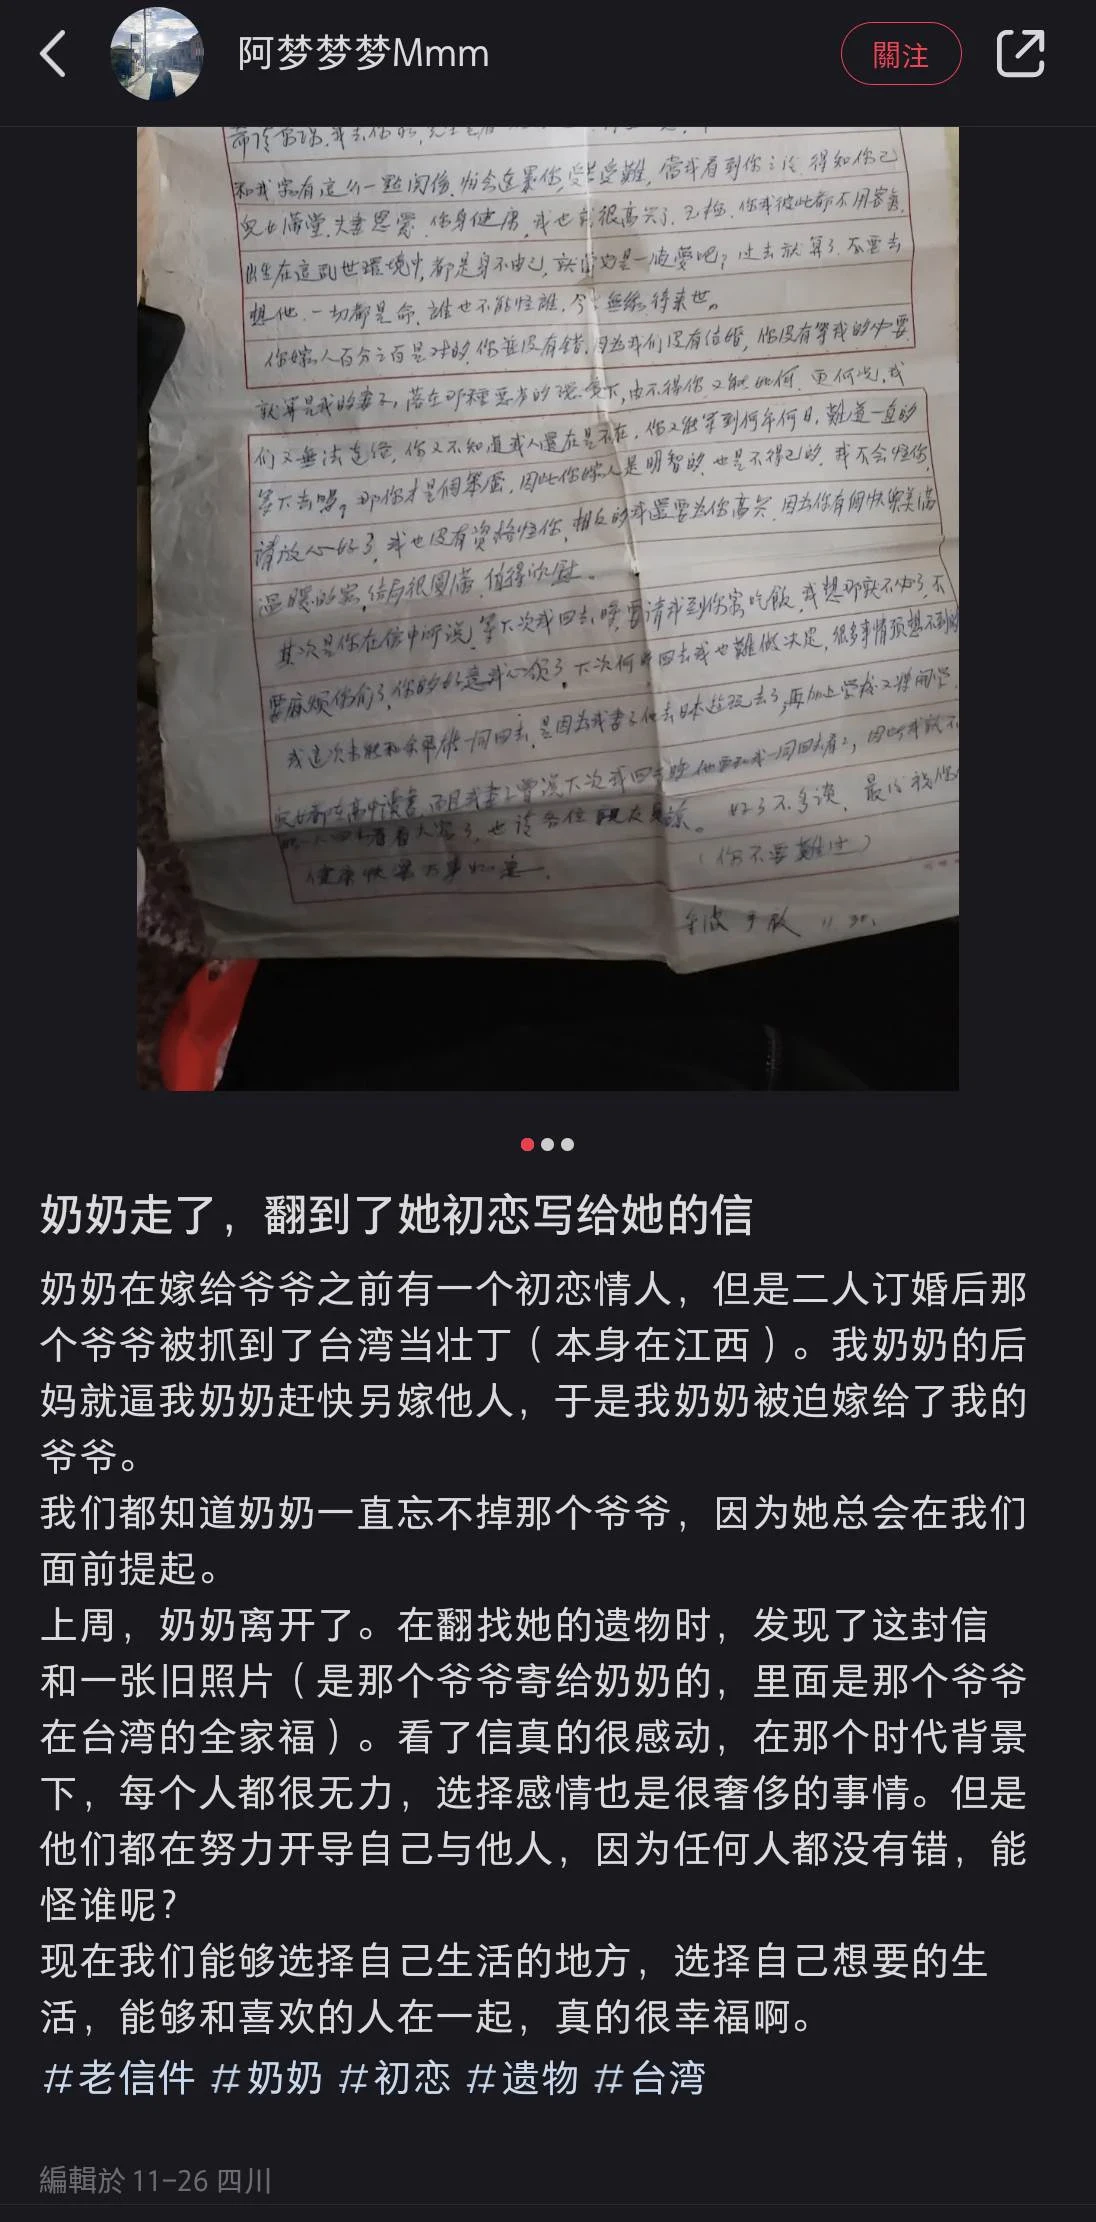 阿梦梦梦Mmm
關注
和我家有這么一點関係,
受苦受難,當我看到你之後 得知你已
兒女滿堂,夫妻恩愛 你身健康,我也就很高兴了.
出生在這乱世環境中,都是身不由己,過去就算了.不要去
想他.一切都是命,誰也不能怪誰,今生無緣待来世。
你嫁人百分之百是对的,你並没有错,因为我们没有结婚,你没有等我的必要
就算是我的妻子,落在那種恶劣的環境下,由不得你又能如何 更何况,我
们又無法连络,你又不知道我人還在是不在,你又能等到何年何日,難道一直的
等下去嗎?那你才是個笨蛋,因此你嫁人是明智的.也是不得已的,我不会怪你,
請放心好了,我也没有資格怪你,相反的我還要为你高兴,因为你有個快樂美滿
温暖的家,结局很圓滿,值得欣慰。
其次是你在信中所说,等下次我回去時,要請我到你家吃飯,我想那就不必了,不
要麻烦你们了,你的好意我心领了,下次何時回去我也難做决定,很多事情预想不到的
我這次未能和 一同回去,是因为我妻子
兒女都在高中读書,而且我妻子曾说下次我回去時他要和我一同回去看看,因此我就不
也请各位親友見諒。 好了不多谈, 最後祝你
健康快樂万事如意.
(你不要難过)
手啟 11.30.
奶奶走了，翻到了她初恋写给她的信
奶奶在嫁给爷爷之前有一个初恋情人，但是二人订婚后那
个爷爷被抓到了台湾当壮丁（本身在江西）。我奶奶的后
妈就逼我奶奶赶快另嫁他人，于是我奶奶被迫嫁给了我的
爷爷。
我们都知道奶奶一直忘不掉那个爷爷，因为她总会在我们
面前提起。
上周，奶奶离开了。在翻找她的遗物时，发现了这封信
和一张旧照片（是那个爷爷寄给奶奶的，里面是那个爷爷
在台湾的全家福）。看了信真的很感动，在那个时代背景
下，每个人都很无力，选择感情也是很奢侈的事情。但是
他们都在努力开导自己与他人，因为任何人都没有错，能
怪谁呢？
现在我们能够选择自己生活的地方，选择自己想要的生
活，能够和喜欢的人在一起，真的很幸福啊。
#老信件 #奶奶 #初恋 #遗物 #台湾
編輯於 11-26 四川